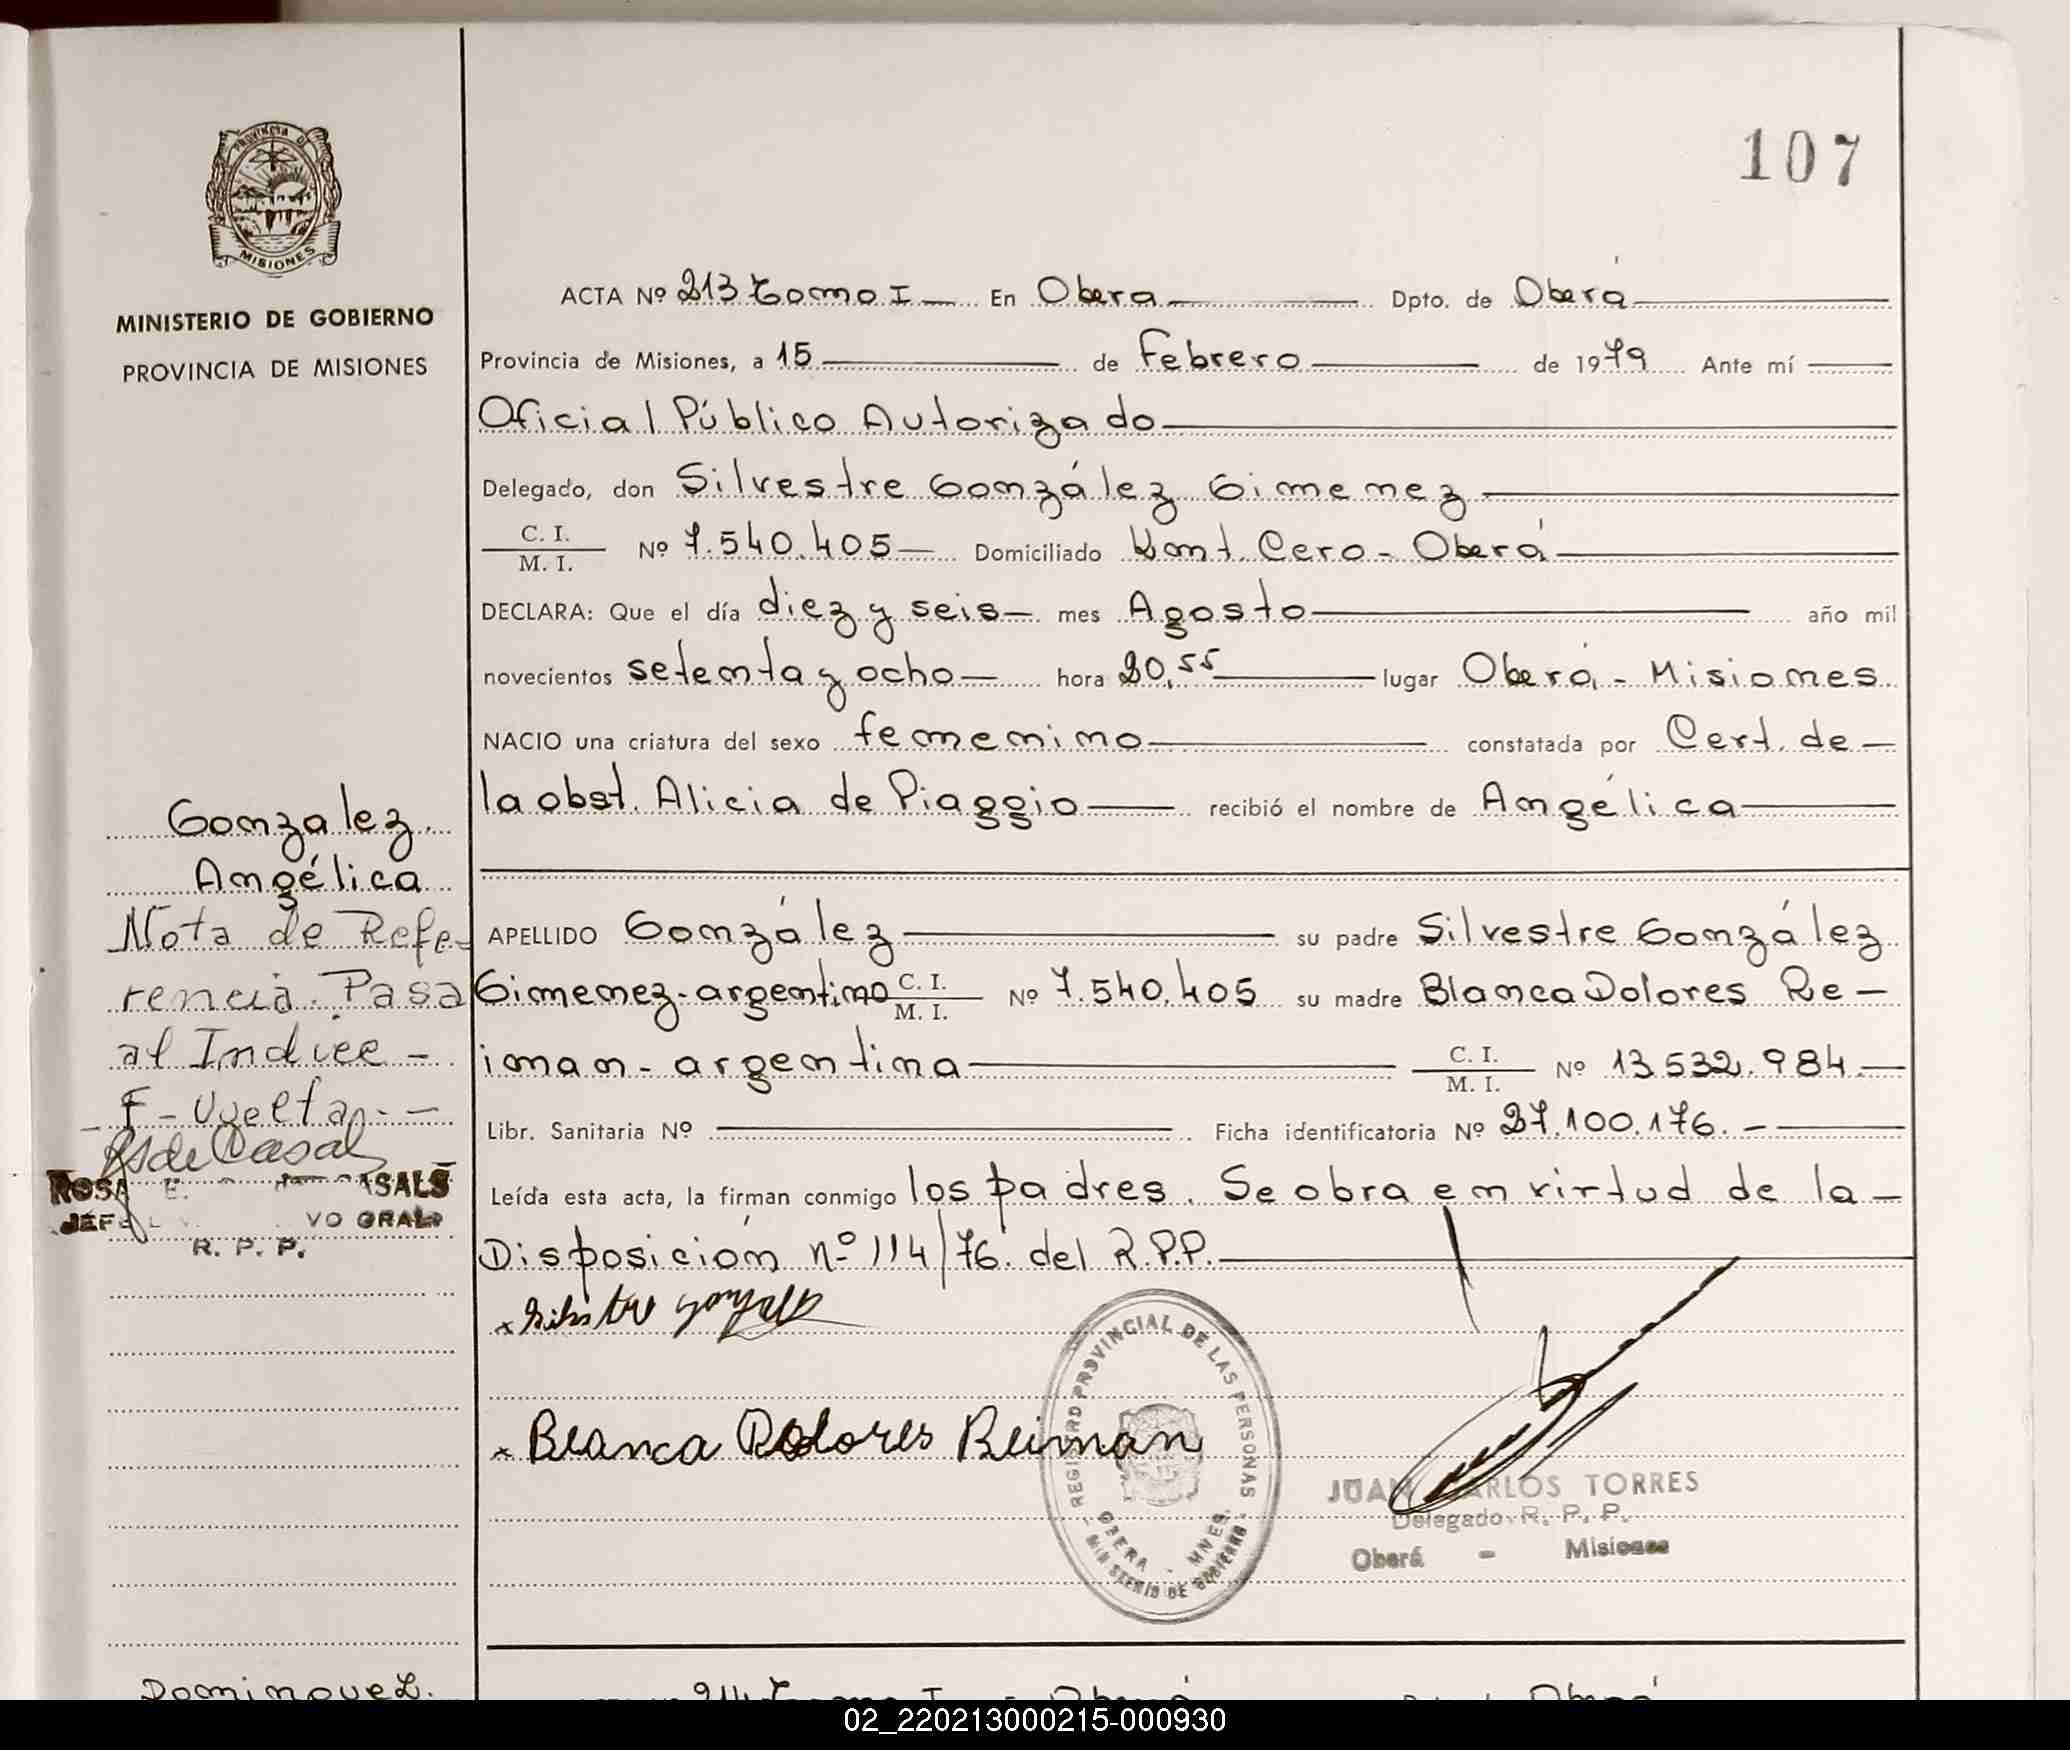 107
PROVINCIA DE
MISIONES
MINISTERIO DE GOBIERNO
PROVINCIA DE MISIONES
ACTA Nº 213 Tomo I En Obera Dpto. de Oberá
Provincia de Misiones, a 15 de Febrero de 1979 Ante mí
Oficial Público Autorizado
Delegado, don Silvestre González Gimenez
C. I.
M. I. Nº 7.540.405 Domiciliado Kmt. Cero - Oberá
DECLARA: Que el día diez y seis mes Agosto año mil
novecientos setenta y ocho hora 20,55 lugar Oberá - Misiones
NACIO una criatura del sexo femenino constatada por Cert. de
la obst. Alicia de Piaggio recibió el nombre de Angélica
APELLIDO González su padre Silvestre González
Gimenez - argentino C. I. M. I. Nº 7.540.405 su madre Blanca Dolores Re-
iman - argentina C. I. M. I. Nº 13.532.984
Libr. Sanitaria Nº Ficha identificatoria Nº 27.100.176.
Leída esta acta, la firman conmigo los padres. Se obra en virtud de la
Disposición nº 114/76 del R.P.P.
Gonzalez
Angélica
Nota de Refe-
rencia. Pasa
al Indice -
F - Vuelta -
ROSA E. CASALS
R. P. P.
x Blanca Dolores Reiman
REGISTRO PROVINCIAL DE LAS PERSONAS
OBERA - MNES.
MINISTERIO DE GOBIERNO
JUAN CARLOS TORRES
Delegado R. P. P.
Oberá - Misiones
02_220213000215-000930